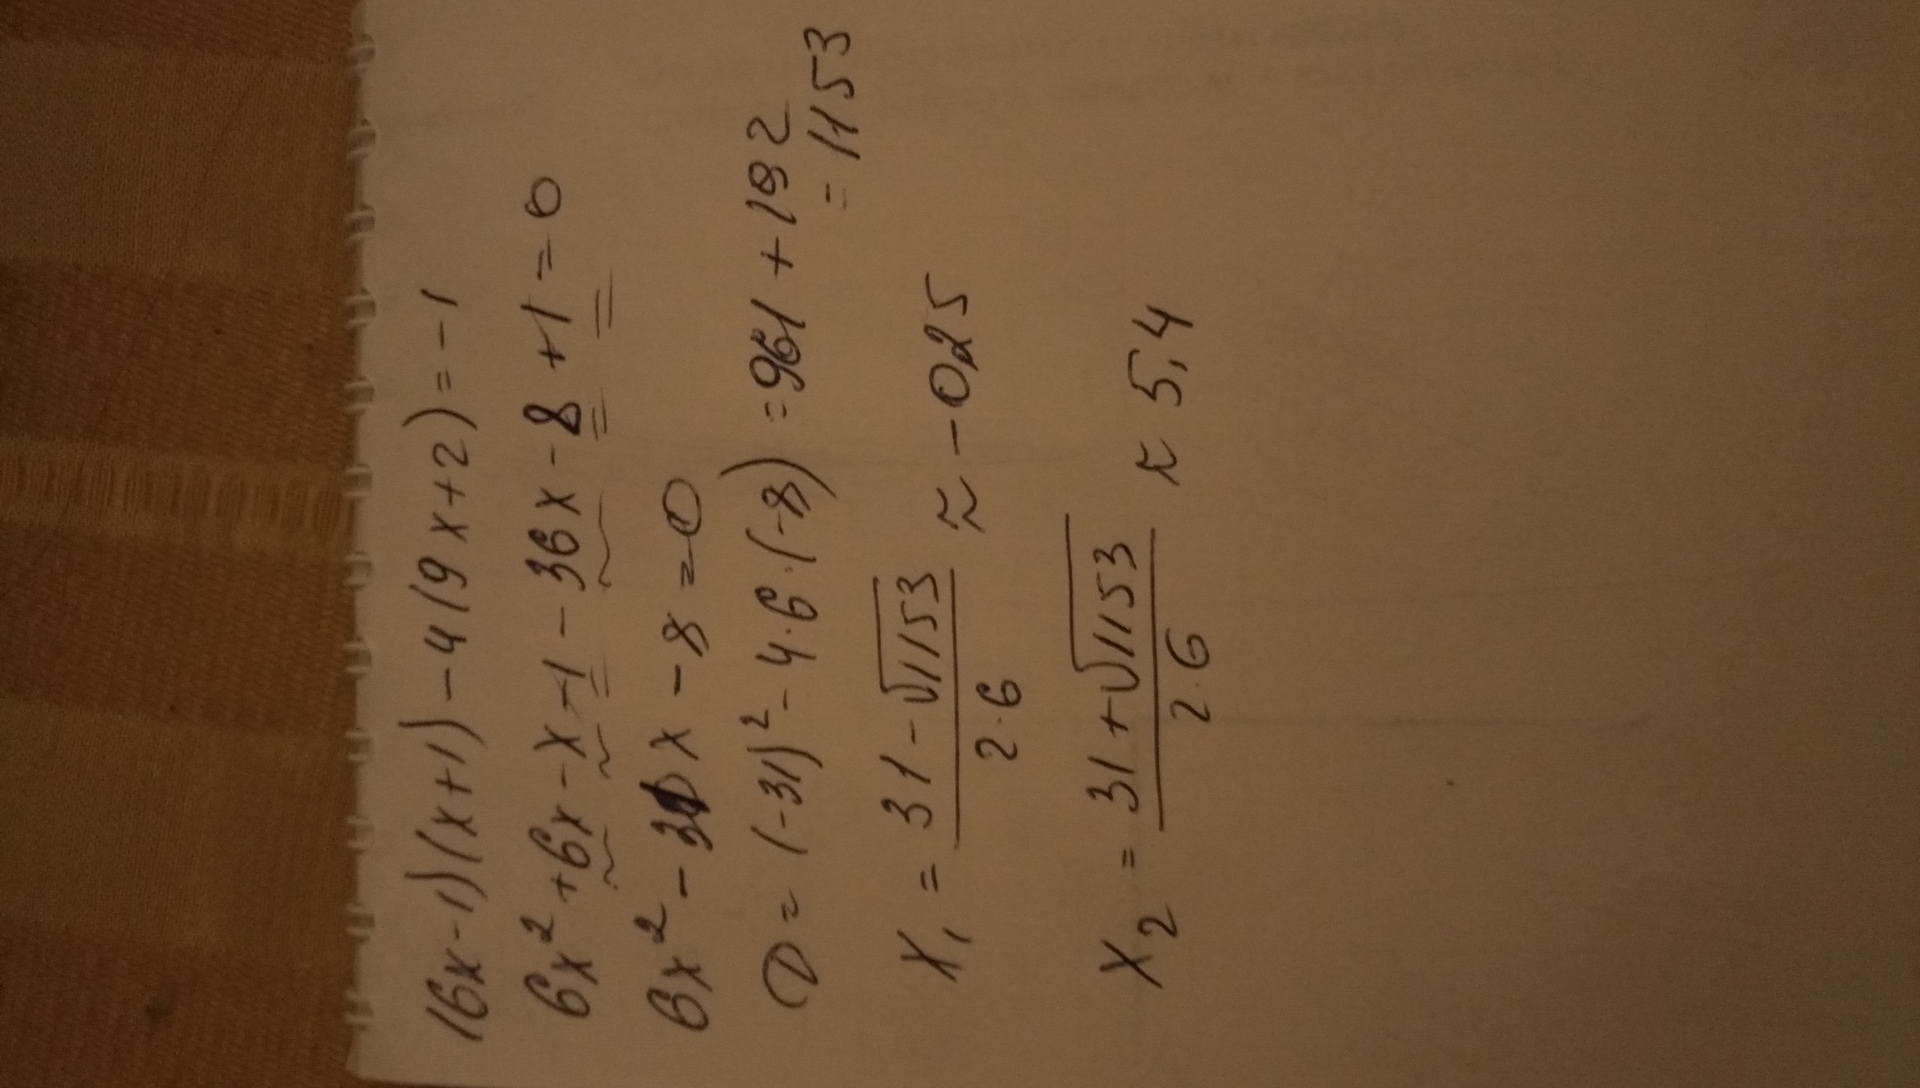 (6x-1)(x+1)-4(9x+2)=-1
6x²+6x-x-1-36x-8+1=0
6x²-31x-8=0
D=(-31)²-4·6·(-8)=961+192
=1153
x₁ = (31-√1153)/(2·6) ≈ -025
x₂ = (31+√1153)/(2·6) ≈ 5,4